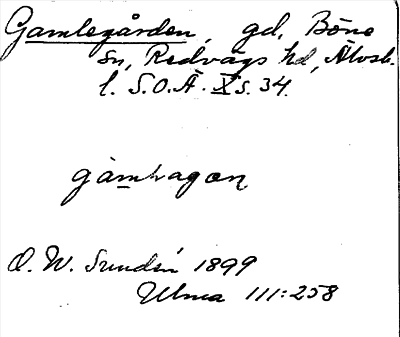 Gamlegården, gd, Böne
sn, Redvägs hd, Älvsb.
l. S.O.Ä. X s. 34.
gàmhagan
O. W. Sundén 1899
Ulma 111:258